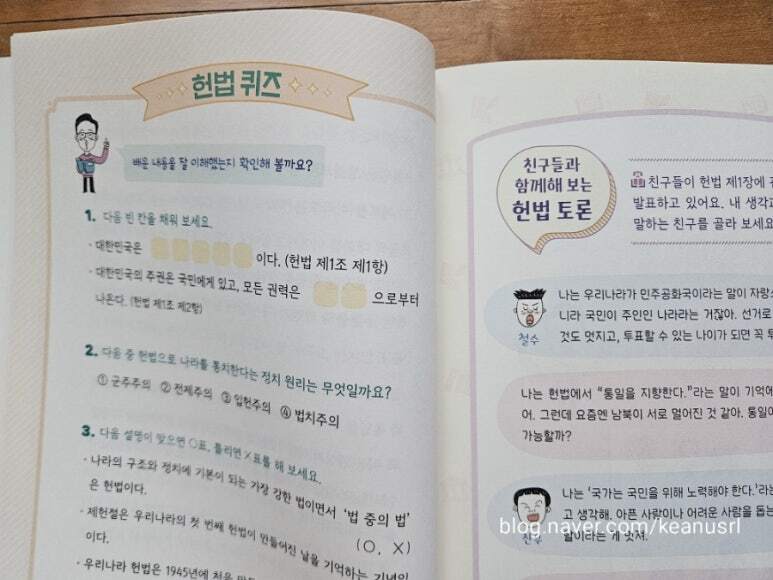 헌법 퀴즈
배운 내용을 잘 이해했는지 확인해 볼까요?
1. 다음 빈 칸을 채워 보세요.
· 대한민국은 이다. (헌법 제1조 제1항)
· 대한민국의 주권은 국민에게 있고, 모든 권력은 으로부터
나온다. (헌법 제1조 제2항)
2. 다음 중 헌법으로 나라를 통치한다는 정치 원리는 무엇일까요?
① 군주주의 ② 전제주의 ③ 입헌주의 ④ 법치주의
3. 다음 설명이 맞으면 ○표, 틀리면 ×표를 해 보세요.
· 나라의 구조와 정치에 기본이 되는 가장 강한 법이면서 '법 중의 법'
은 헌법이다.
(○, ×)
· 제헌절은 우리나라의 첫 번째 헌법이 만들어진 날을 기억하는 기념일
이다.
· 우리나라 헌법은 1945년에 처음
친구들과
함께해 보는
헌법 토론
친구들이 헌법 제1장에
발표하고 있어요. 내 생각과
말하는 친구를 골라 보세요
나는 우리나라가 민주공화국이라는 말이
니라 국민이 주인인 나라라는 거잖아. 선거로
것도 멋지고, 투표할 수 있는 나이가 되면 꼭
철수
나는 헌법에서 "통일을 지향한다."라는 말이
어. 그런데 요즘엔 남북이 서로 멀어진 것 같아.
가능할까?
나는 '국가는 국민을 위해 노력해야 한다.'라는
고 생각해. 아픈 사람이나 어려운 사람을
blog.naver.com/keanusrl